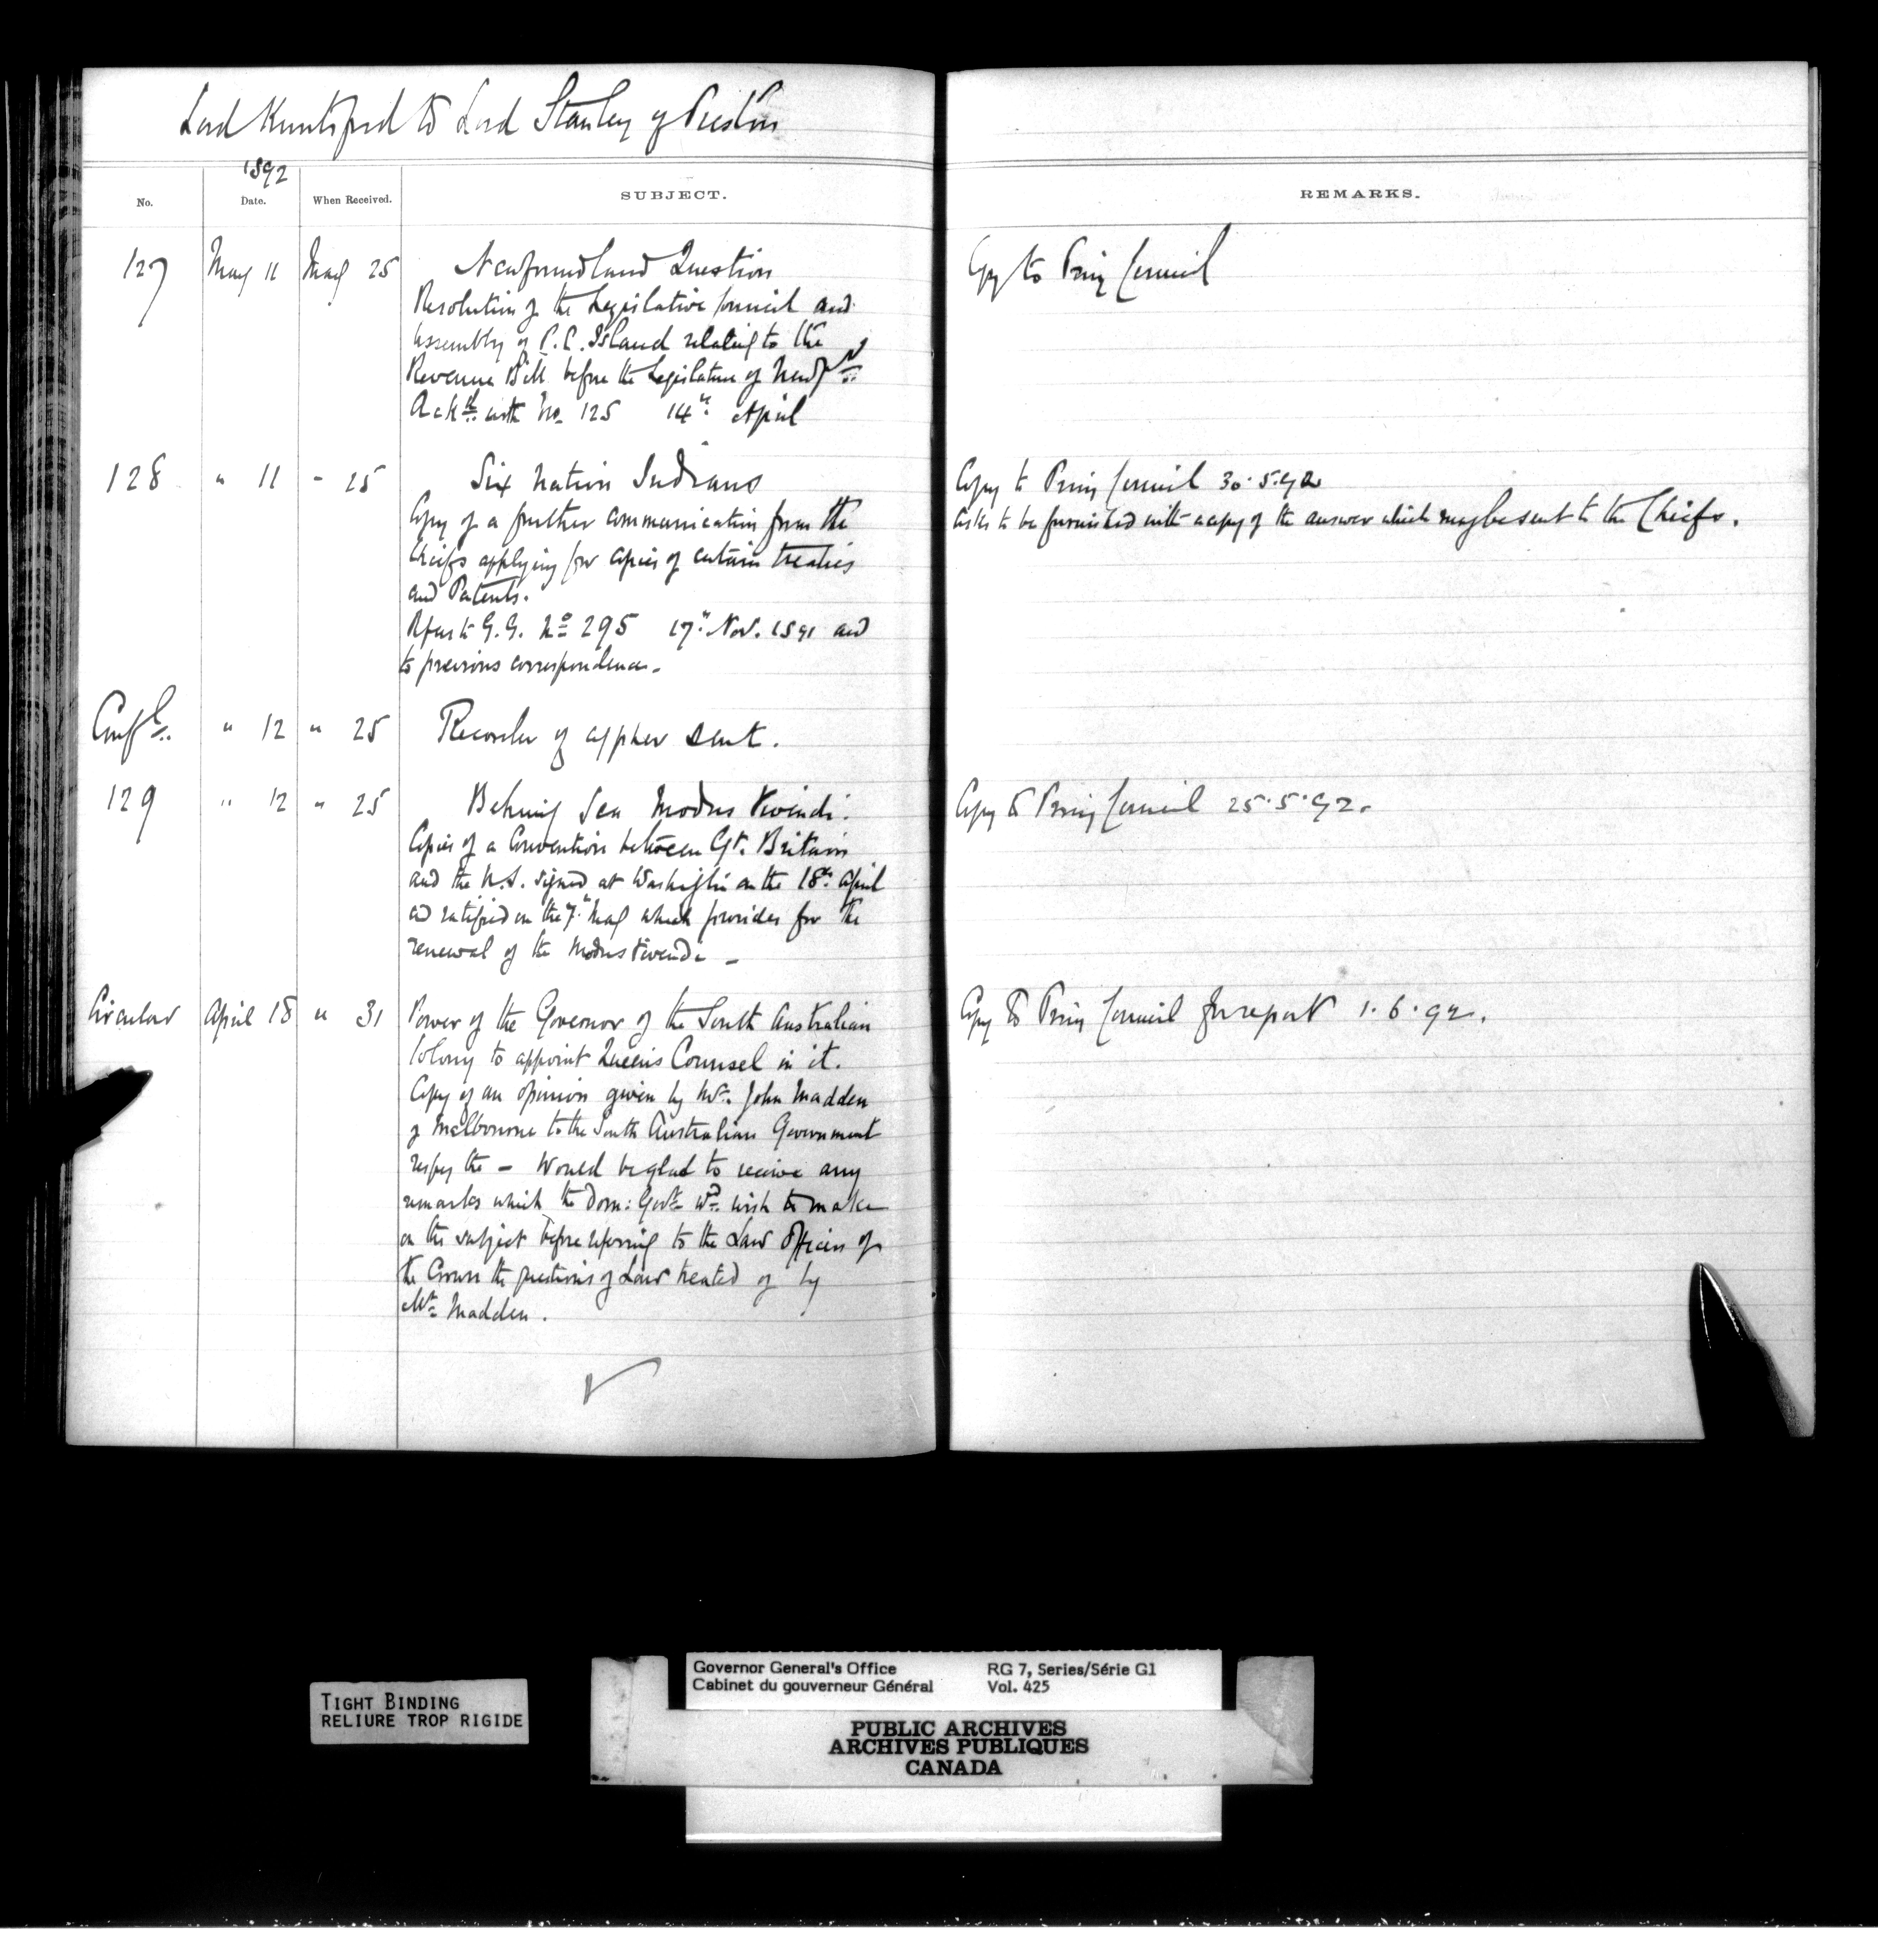 Lord Knutsford to Lord Stanley of Preston
1892
No. Date. When Received. SUBJECT. REMARKS.
127 May 11 May 25 Newfoundland Question Copy to Privy Council
Resolution of the Legislative Council and
Assembly of P.E. Island relating to the
Revenue Bill before the Legislature of Newfd
Ackd with No. 125 14th April
128 " 11 " 25 Six Nation Indians Copy to Privy Council 30.5.92
Copy of a further communication from the asks to be furnished with a copy of the answer which may be sent to the Chiefs.
Chiefs applying for copies of certain treaties
and Patents.
Refers to G.G. No 295 17th Nov. 1891 and
to previous correspondence.
Confl. " 12 " 25 of cypher sent.
129 " 12 " 25 Behring Sea Modus Vivendi. Copy to Privy Council 25.5.92.
Copies of a Convention between Gt. Britain
and the U.S. signed at Washington on the 18th April
and ratified on the 7th May which provides for the
renewal of the Modus Vivendi –
Circular April 18 " 31 Power of the Governor of the South Australian Copy to Privy Council for report 1.6.92.
Colony to appoint Queens Counsel in it.
Copy of an opinion given by Mr. John Madden
of Melbourne to the South Australian Government
respg the – Would be glad to receive any
remarks which the Dom: Govt wd. wish to make
on the subject before referring to the Law Officers of
the Crown the questions of Law treated of by
Mr Madden.
TIGHT BINDING
RELIURE TROP RIGIDE
Governor General's Office RG 7, Series/Série G1
Cabinet du gouverneur Général Vol. 425
PUBLIC ARCHIVES
ARCHIVES PUBLIQUES
CANADA